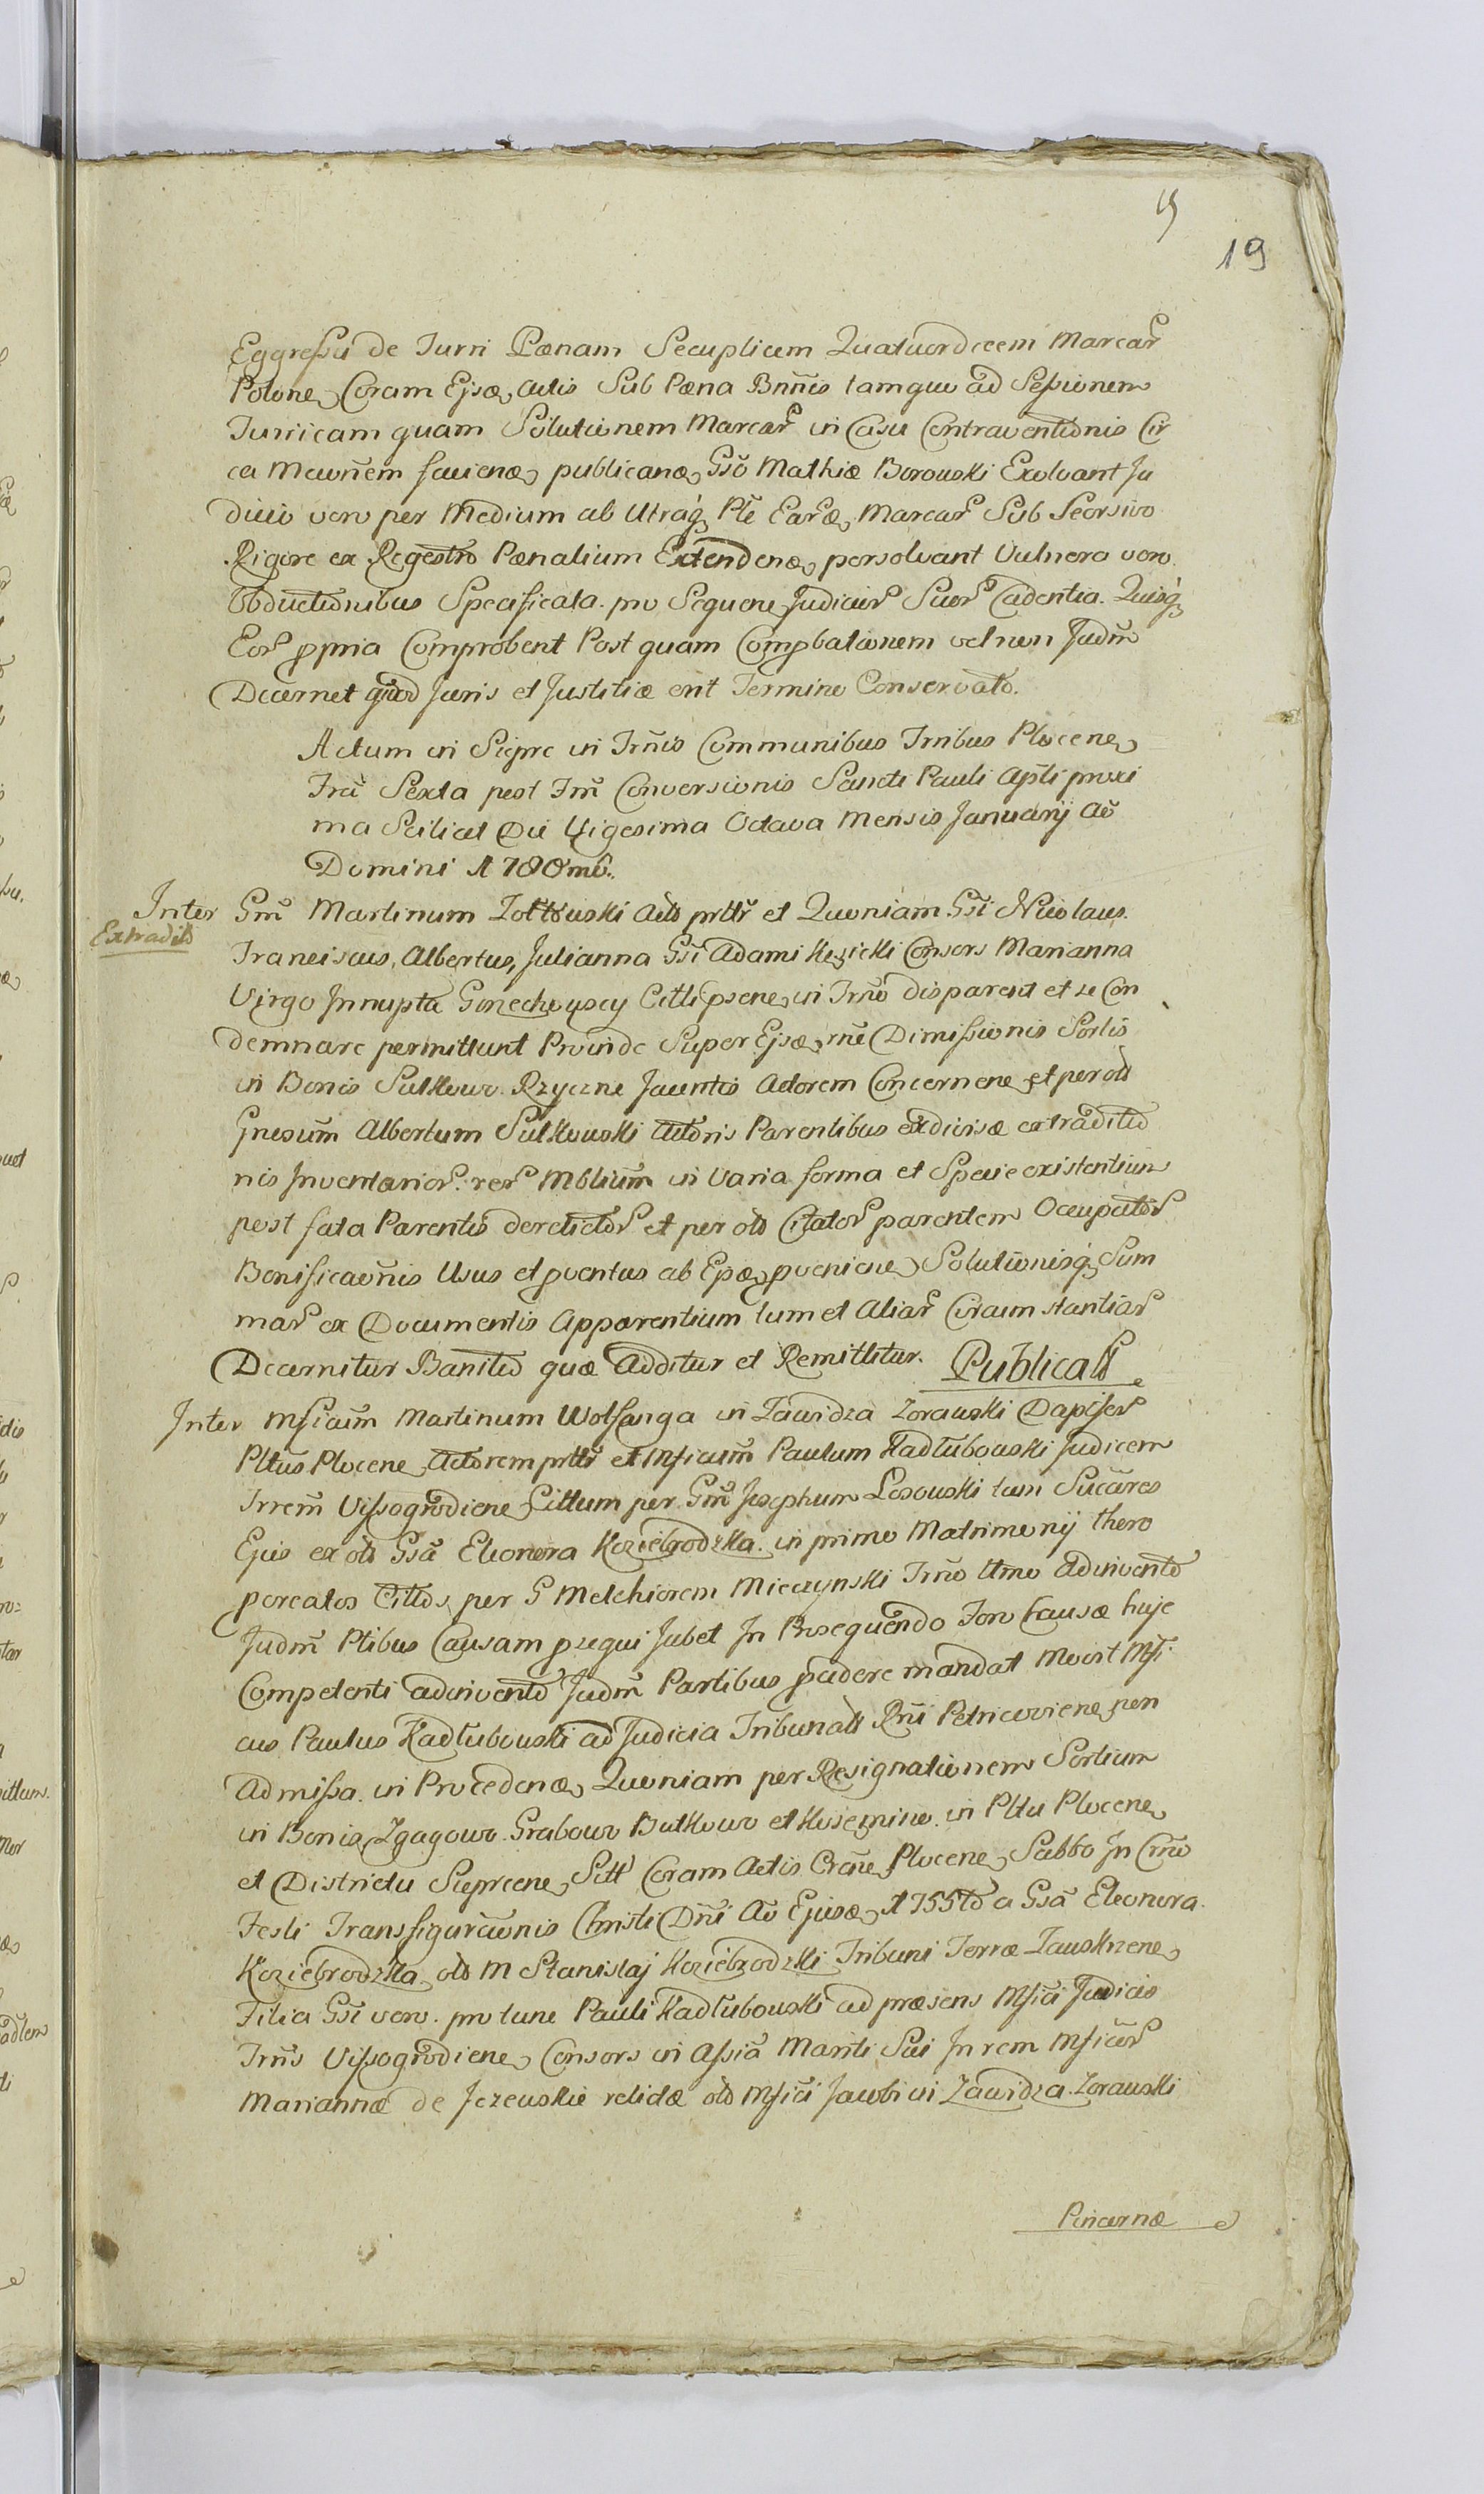 19
Eggressu de Turri Pœnam Secuplicem Quatuordecem Marcar
Polone, Coram Ejsæ, Actis Sub Pœna Bnn̄is tamque ad Sessionem
Turricam quam Solutionem Marcar in Casu Contraventionis Cir
ca publicanæ, Gsō Mathiæ Borowski Exolvant Ju
dicio vero per Medium ab Utraq, Pte Earæ, Marcar Sub Seorsivo
Rigore ex Regestro Pœnalium Extendenæ, persolvant Vulnera vero
Obductionibus Specificata pro Sequene Judicior Suor Cadentia Quisq,
Eor ppria Comprobent Post quam Compbationem vel non Judm̄
Decernet quod Juris et Justitiæ erit Termino Conservato.
Actum in Sieprc in Trn̄is Communibus Trribus Plocene,
Fra Sexta post Fm̄ Conversionis Sancti Pauli Apl̄i proxi
ma Scilicet Die Vigesima Octava Mensis Januarij Aō
Domini 1780mo.
Inter Gm̄ Martinum Zołtowski Actō prttr et Quoniam Gsi Nicolaus.
Extradit
Franciscus, Albertus, Julianna Gsi Adami Kęsicki Consors Marianna
Virgo Innupta in Trn̄o disparent et se Con
demnare permittunt Proinde Super Ejsæ, rn̄e Dimissionis Sortis
in Bonis Sulkowo Rzyczne Jacentis Actorem Concernene, et per olt
Gnesum̄ Albertum Sulkowski Actoris Parentibus exdivisæ extraditio
nis Inventarior. rer Mblium̄ in Varia forma et Specie existentium
post fata Parentis derelictor et per olt Citator parentem Occupator
Bonificaōnis Usus et pventus ab Epæ, pveniene, Solutionisq, Sum
mar ex Documentis Apparentium tum et Aliar Circum stantiar
Decernitur Banitio quæ Additur et Remittitur. Publicatt
Inter Mficum̄ Martinum Wolfanga in Zawidza Zorawski Dapifer
Pltus Plocene, Actorem prttr et Mficum̄ Paulum Kadłubowski Judicem
Trrem̄ Vissogrodiene, Cittum per Gm̄ Josephum Lesowski tum Succ̄res
Ejus ex olt Gsa Eleonora Koziebrodzka in primo Matrimonij thero
pcreatos Cittos, per G Melchiorem Mieczynski Trn̄o ttmo Adinvento
Judm̄ Ptibus Causam psequi Jubet In Prosequendo Foro Causæ huje
Competenti adinvento Judm̄ Partibus pcedere mandat Movit Mfi
cus Paulus Kadłubowski ad Judicia Tribunatt Rn̄i Petricoviene, pen
Admissa in Procedenæ, Quoniam per Resignationem Sortium
in Bonis, Zgagowo Grabowo Bulkowo et Kosemino in Pltu Plocene,
et Districtu Sieprcene, Sitt Coram Actis Plocene, Sabbo In Crn̄o
Festi Transfiguraōnis Christi Dn̄i Aō Ejusæ, 1755to a Gsa Eleonora
Koziebrodzka, olt M Stanislaj Koziebrodzki Tribuni Terræ Zauskrzene,
Filia Gsi vero pro tunc Pauli Kadłubowski ad præsens Mfici Judicis
Trris Vissogrodiene, Consors in Assia Mariti Sui In rem Mficor
Mariannæ de Jezewskie relictæ olt Mfici Jacobi in Zawidza Zorawski
Pincernæ